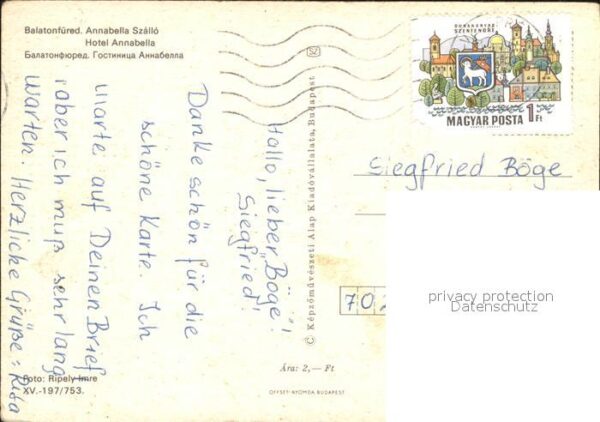 Balatonfüred. Annabella Szálló
Hotel Annabella
Балатонфюред. Гостиница Аннабелла
Hallo, lieber „Böge“!
Siegfried!
Danke schön für die
schöne Karte. Ich
warte auf Deinen Brief
aber ich muß sehr lang
warten. Herzliche Grüße: Rita
Foto: Ripely Imre
XV.-197/753.
© Képzőművészeti Alap Kiadóvállalata, Budapest
SZ
Ára: 2,— Ft
OFFSET-NYOMDA BUDAPEST
DUNAKANYAR
SZENTENDRE
MAGYAR POSTA 1Ft
Siegfried Böge
702
privacy protection
Datenschutz